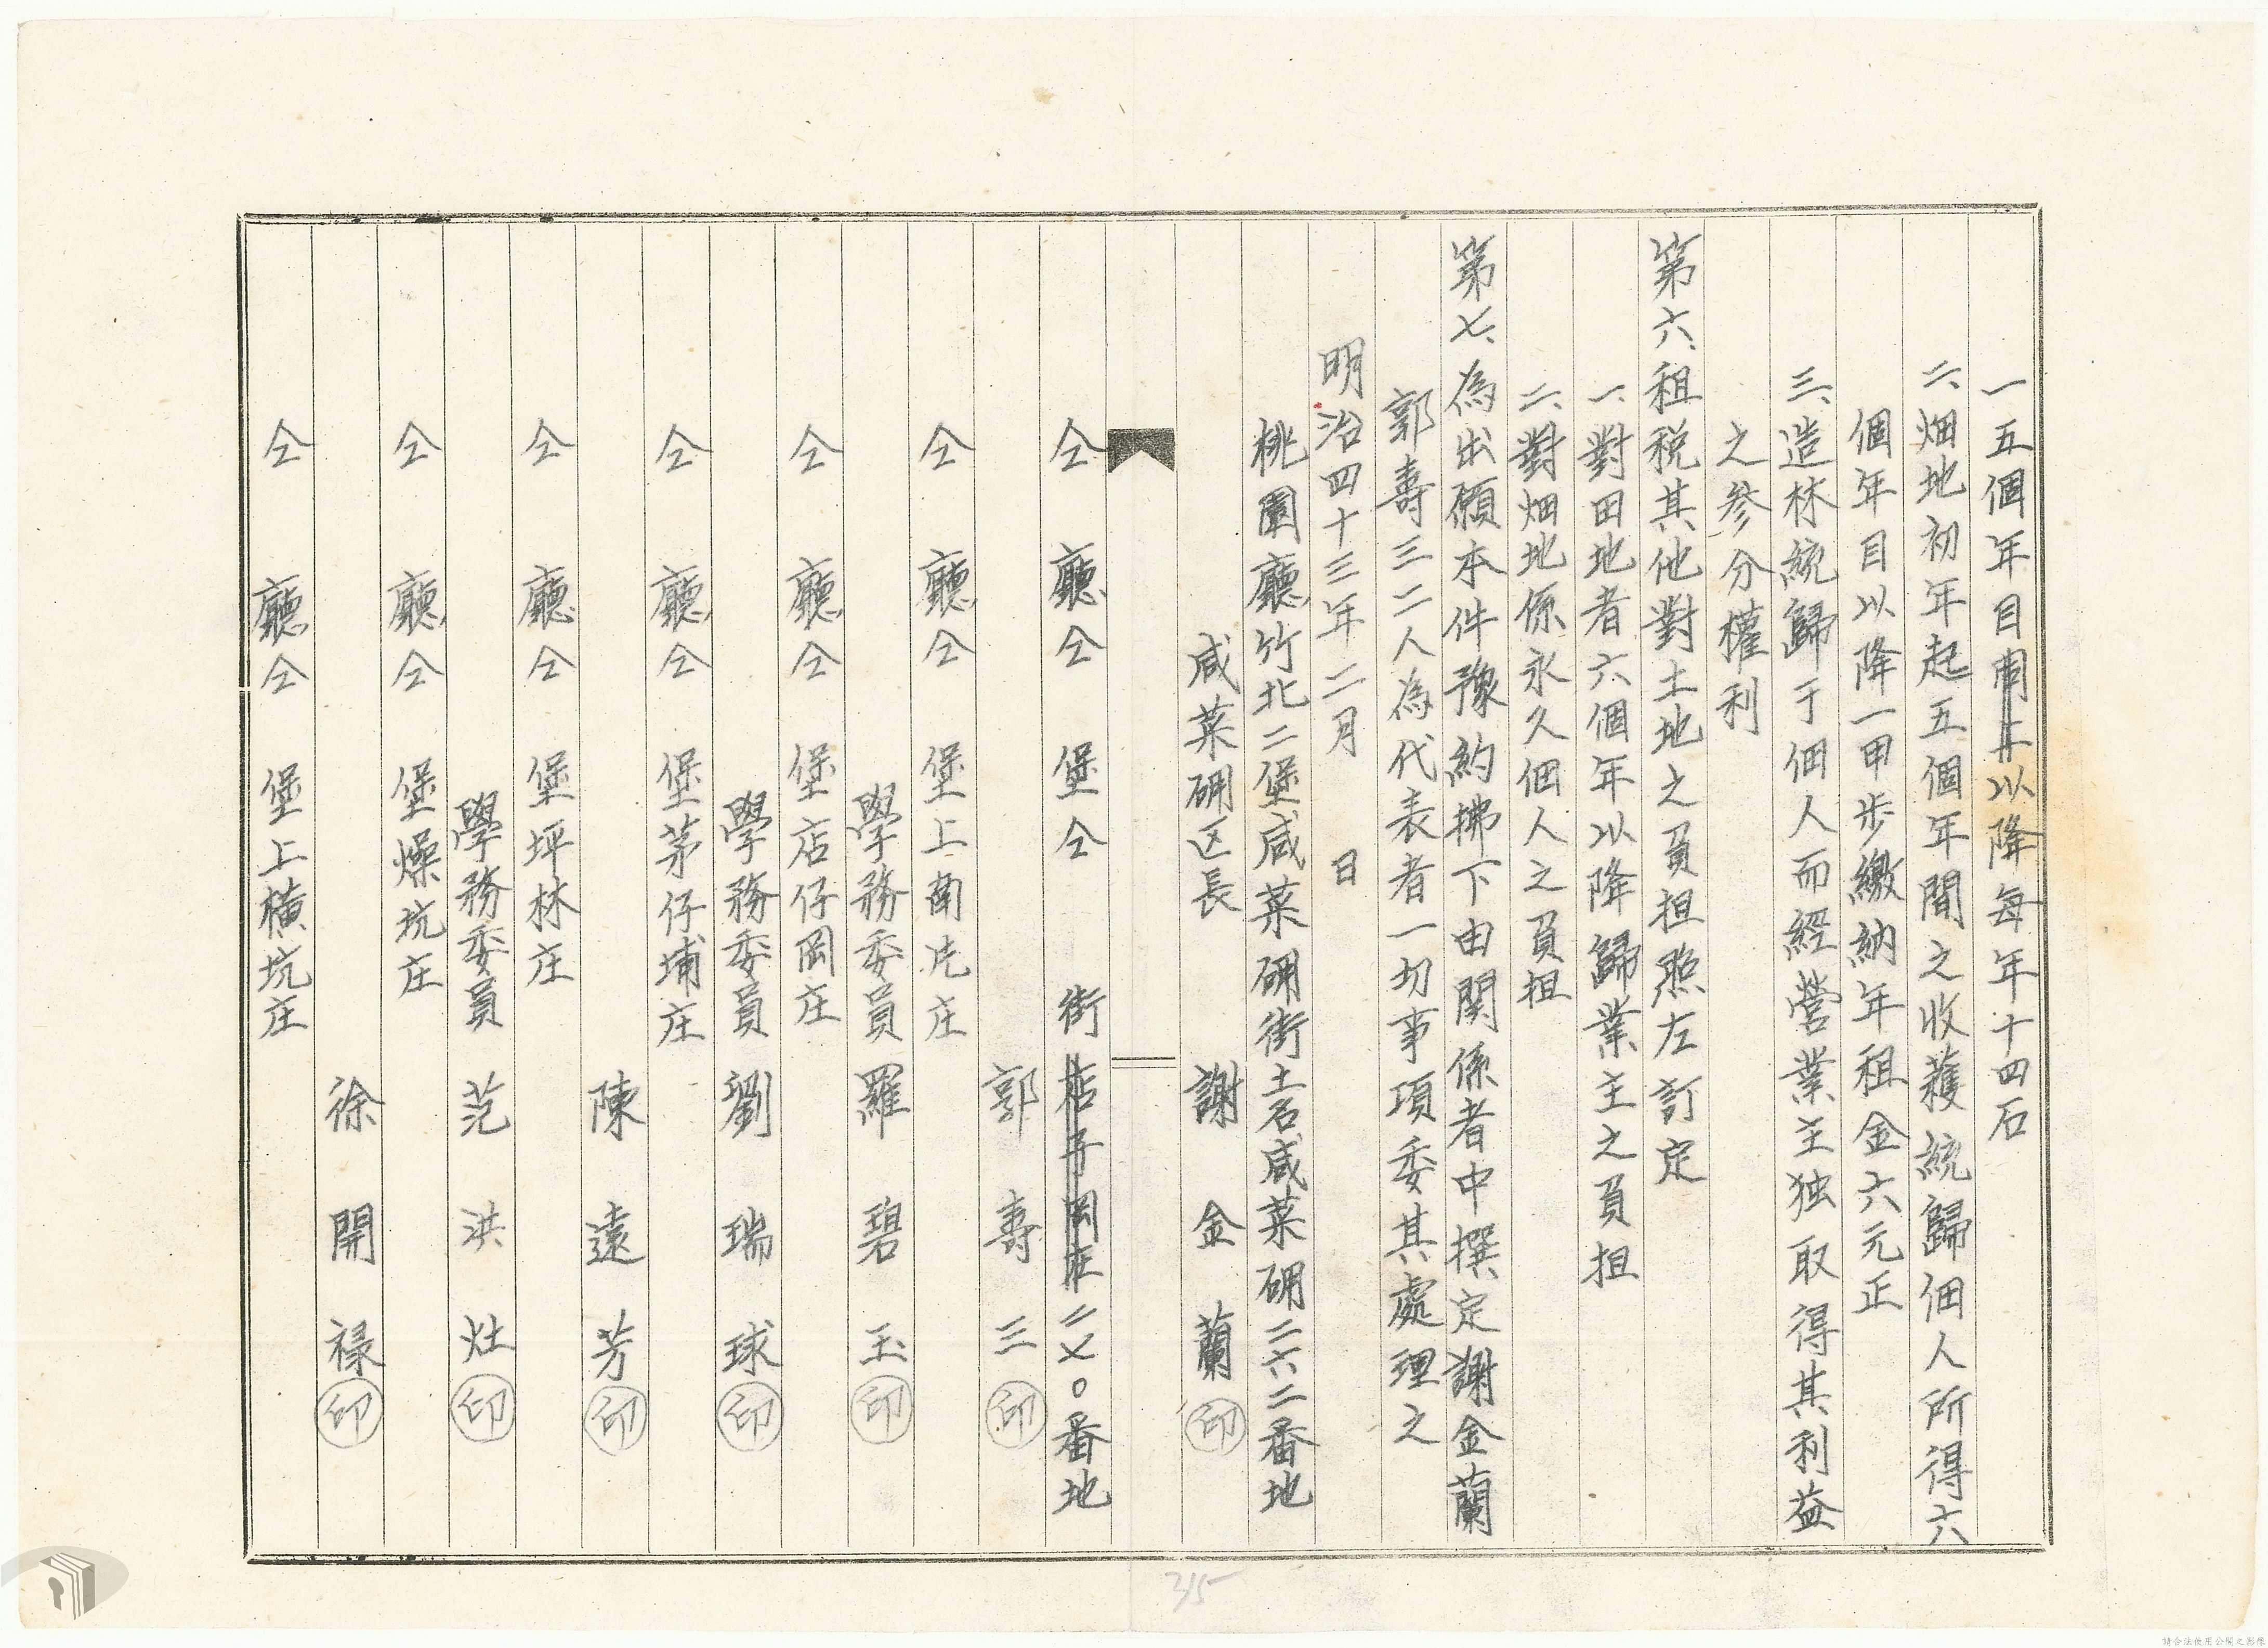 一五個年目以降每年十四石
二、畑地初年起五個年間之收穫統歸佃人所得六
個年目以降一甲步繳納年租金六元正
三、造林統歸于佃人而經營業主独取得其利益
之參分權利
第六、租税其他對土地之負担照左訂定
一、對田地者六個年以降歸業主之負担
二、對畑地係永久佃人之負担
第七、為出願本件豫約拂下由関係者中撰定謝金蘭
郭壽三二人為代表者一切事項委其處理之
明治四十三年二月　　日
桃園廳竹北二堡咸菜硼街土名咸菜硼二六二番地
咸菜硼区長　謝　金　蘭 印
仝　廳仝　堡仝　街店子岡庄二七〇番地
郭　壽　三 印
仝　廳仝　堡上南片庄
學務委員　羅　碧　玉 印
仝　廳仝　堡店仔岡庄
學務委員　劉　瑞　球 印
仝　廳仝　堡茅仔埔庄
陳　遠　芳 印
仝　廳仝　堡坪林庄
學務委員　范　洪　灶 印
仝　廳仝　堡燥坑庄
徐　開　禄 印
仝　廳仝　堡上橫坑庄
315
請合法使用公開之影像